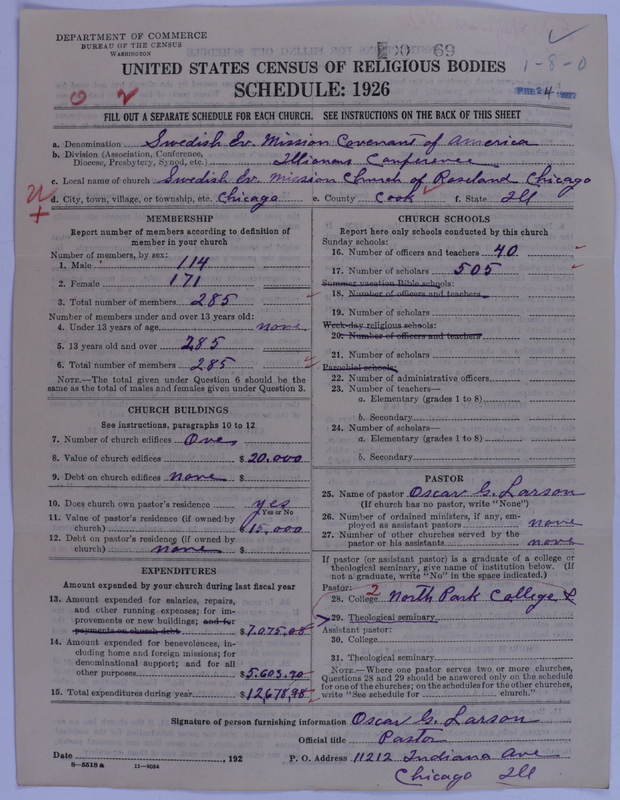 DEPARTMENT OF COMMERCE
BUREAU OF THE CENSUS
WASHINGTON
69
1-8-0
UNITED STATES CENSUS OF RELIGIOUS BODIES
SCHEDULE: 1926
FEB 24 1927
FILL OUT A SEPARATE SCHEDULE FOR EACH CHURCH. SEE INSTRUCTIONS ON THE BACK OF THIS SHEET
a. Denomination Swedish Ev. Mission Covenant of America
b. Division (Association, Conference,
Diocese, Presbytery, Synod, etc.) Illionas Conference
c. Local name of church Swedish Ev. Mission Church of Roseland Chicago
d. City, town, village, or township, etc. Chicago e. County Cook f. State Ill
MEMBERSHIP
Report number of members according to definition of
member in your church
Number of members, by sex:
1. Male 114
2. Female 171
3. Total number of members 285
Number of members under and over 13 years old:
4. Under 13 years of age none
5. 13 years old and over 285
6. Total number of members 285
NOTE.—The total given under Question 6 should be the
same as the total of males and females given under Question 3.
CHURCH BUILDINGS
See instructions, paragraphs 10 to 12
7. Number of church edifices One
8. Value of church edifices $ 20,000
9. Debt on church edifices none $
10. Does church own pastor's residence yes
Yes or No
11. Value of pastor's residence (if owned by
church) $ 15,000
12. Debt on pastor's residence (if owned by
church) none $
EXPENDITURES
Amount expended by your church during last fiscal year
13. Amount expended for salaries, repairs,
and other running expenses; for im-
provements or new buildings; and for
payments on church debt $ 7,075,08
14. Amount expended for benevolences, in-
cluding home and foreign missions; for
denominational support; and for all
other purposes $ 5,603.70
15. Total expenditures during year $ 12,678,98
CHURCH SCHOOLS
Report here only schools conducted by this church
Sunday schools:
16. Number of officers and teachers 40
17. Number of scholars 505
Summer vacation Bible schools:
18. Number of officers and teachers
19. Number of scholars
Week-day religious schools:
20. Number of officers and teachers
21. Number of scholars
Parochial schools:
22. Number of administrative officers
23. Number of teachers—
a. Elementary (grades 1 to 8)
b. Secondary
24. Number of scholars—
a. Elementary (grades 1 to 8)
b. Secondary
PASTOR
25. Name of pastor Oscar G. Larson
(If church has no pastor, write "None")
26. Number of ordained ministers, if any, em-
ployed as assistant pastors none
27. Number of other churches served by the
pastor or his assistants none
If pastor (or assistant pastor) is a graduate of a college or
theological seminary, give name of institution below. (If
not a graduate, write "No" in the space indicated.)
Pastor:
28. College 2 North Park College &
29. Theological seminary
Assistant pastor:
30. College
31. Theological seminary
NOTE.—Where one pastor serves two or more churches,
Questions 28 and 29 should be answered only on the schedule
for one of the churches; on the schedules for the other churches,
write "See schedule for church."
Signature of person furnishing information Oscar G. Larson
Official title Pastor
Date , 192 P. O. Address 11212 Indiana Ave
8-5518 a 11-9034 Chicago Ill